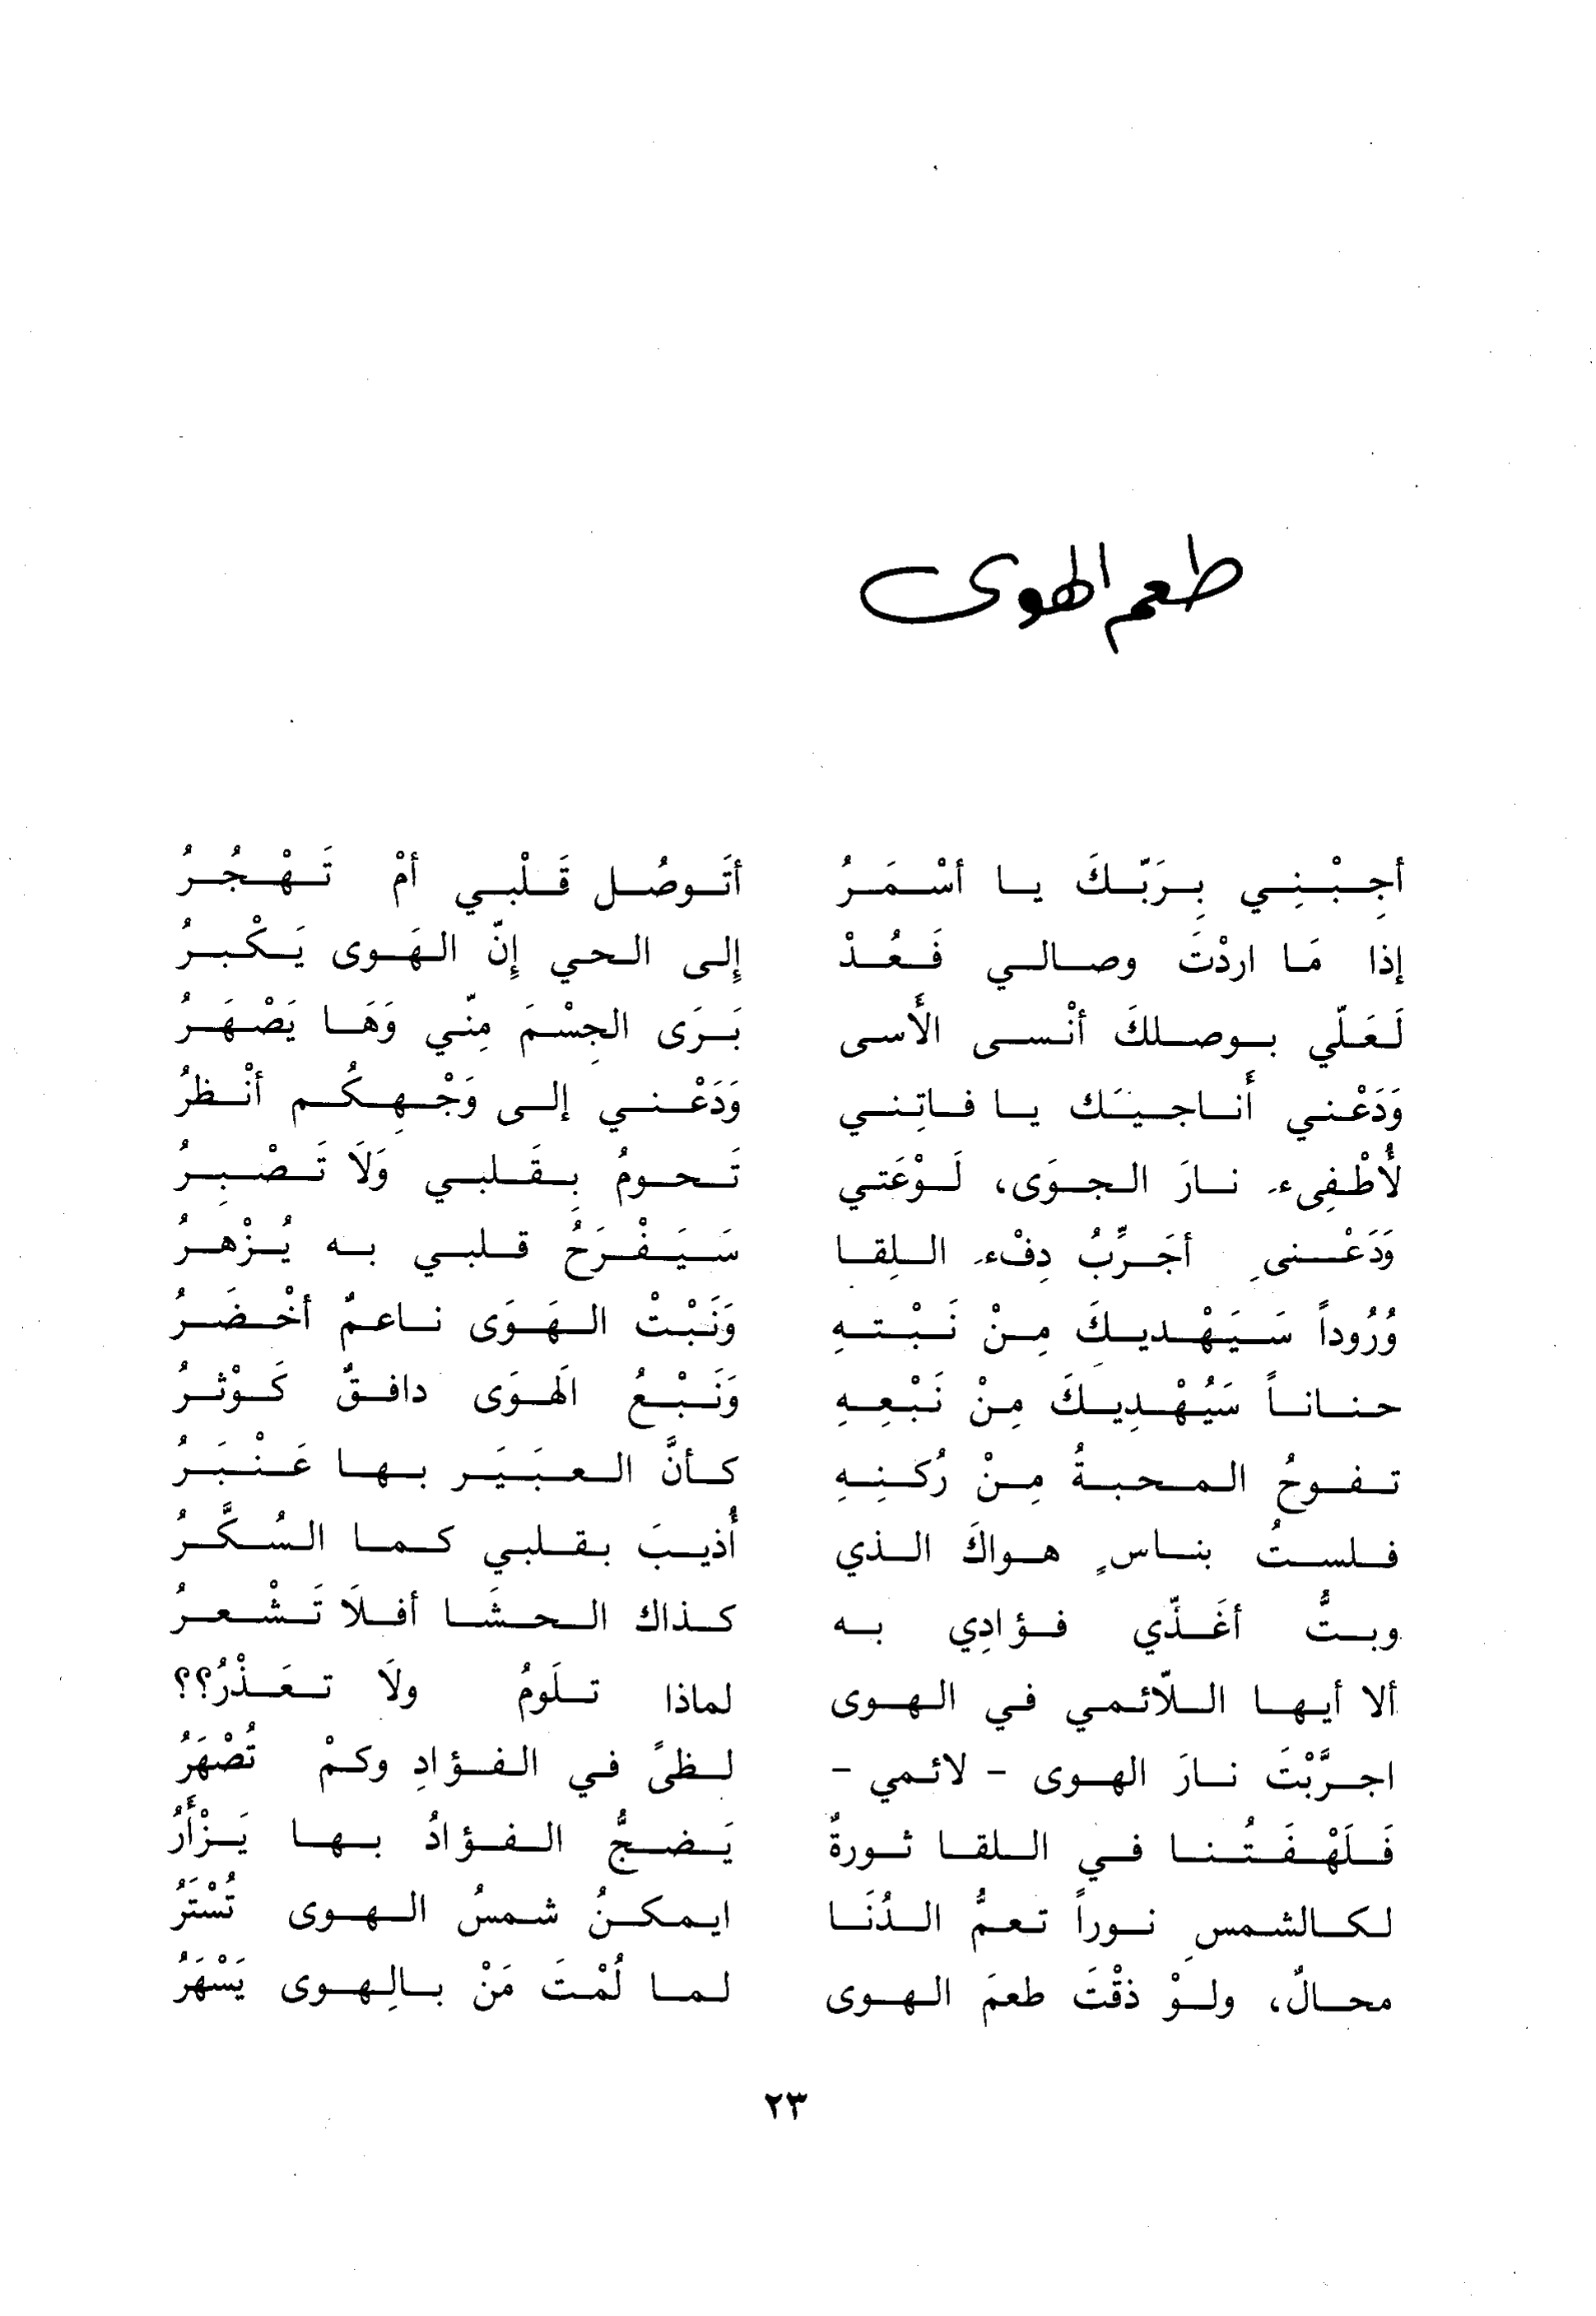 طعم الهوى
أجِبْنِي بِرَبّكَ يا أسْمَرُ أتَوصُل قَلْبي أمْ تَهْجُرُ
إذا مَا اردْتَ وصالي فَعُدْ إلى الحي إِنّ الهَوى يَكْبرُ
لَعَلّي بوصلكَ أنْسى الأَسى بَرَى الجِسْمَ مِنّي وَهَا يَصْهَرُ
وَدَعْني أَناجيَك يا فاتِني وَدَعْني إلى وَجْهِكُم أنْظرُ
لأُطْفِىء نارَ الجوَى، لَوْعَتي تَحومُ بِقَلبي وَلَا تَصْبِرُ
وَدَعْنى أجَرِّبُ دِفْء اللِقا سَيَفْرَحُ قلبي به يُزْهرُ
وُرُوداً سَيَهْديكَ مِنْ نَبْتهِ وَنَبْتْ الهَوَى ناعمٌ أخْضَرُ
حناناً سَيُهْدِيكَ مِنْ نَبْعِهِ وَنَبْعُ الهَوَى دافقٌ كَوْثرُ
تفوحُ المحبةُ مِنْ رُكنِهِ كأنَّ العبَيَر بها عَنْبَرُ
فلستُ بناسٍ هواكَ الذي أُذيبَ بقلبي كما السُكَّرُ
وبتُّ أغَذّي فؤادِي به كذاك الحشَا أفلَا تَشْعرُ
ألا أيها اللّائمي في الهوى لماذا تلَومُ ولَا تعَذْرُ؟؟
اجرَّبْتَ نارَ الهوى - لائمي - لظىً في الفؤادِ وكمْ تُصْهَرُ
فَلَهْفَتُنا في اللقا ثورةٌ يَضجُّ الفؤادُ بها يَزْأَرُ
لكالشمسِ نوراً تعمُّ الدُنَا ايمكنُ شمسُ الهوى تُسْتَرُ
محالٌ، ولوْ ذقْتَ طعمَ الهوى لما لُمْتَ مَنْ بالِهوى يَسْهَرُ
٢٣